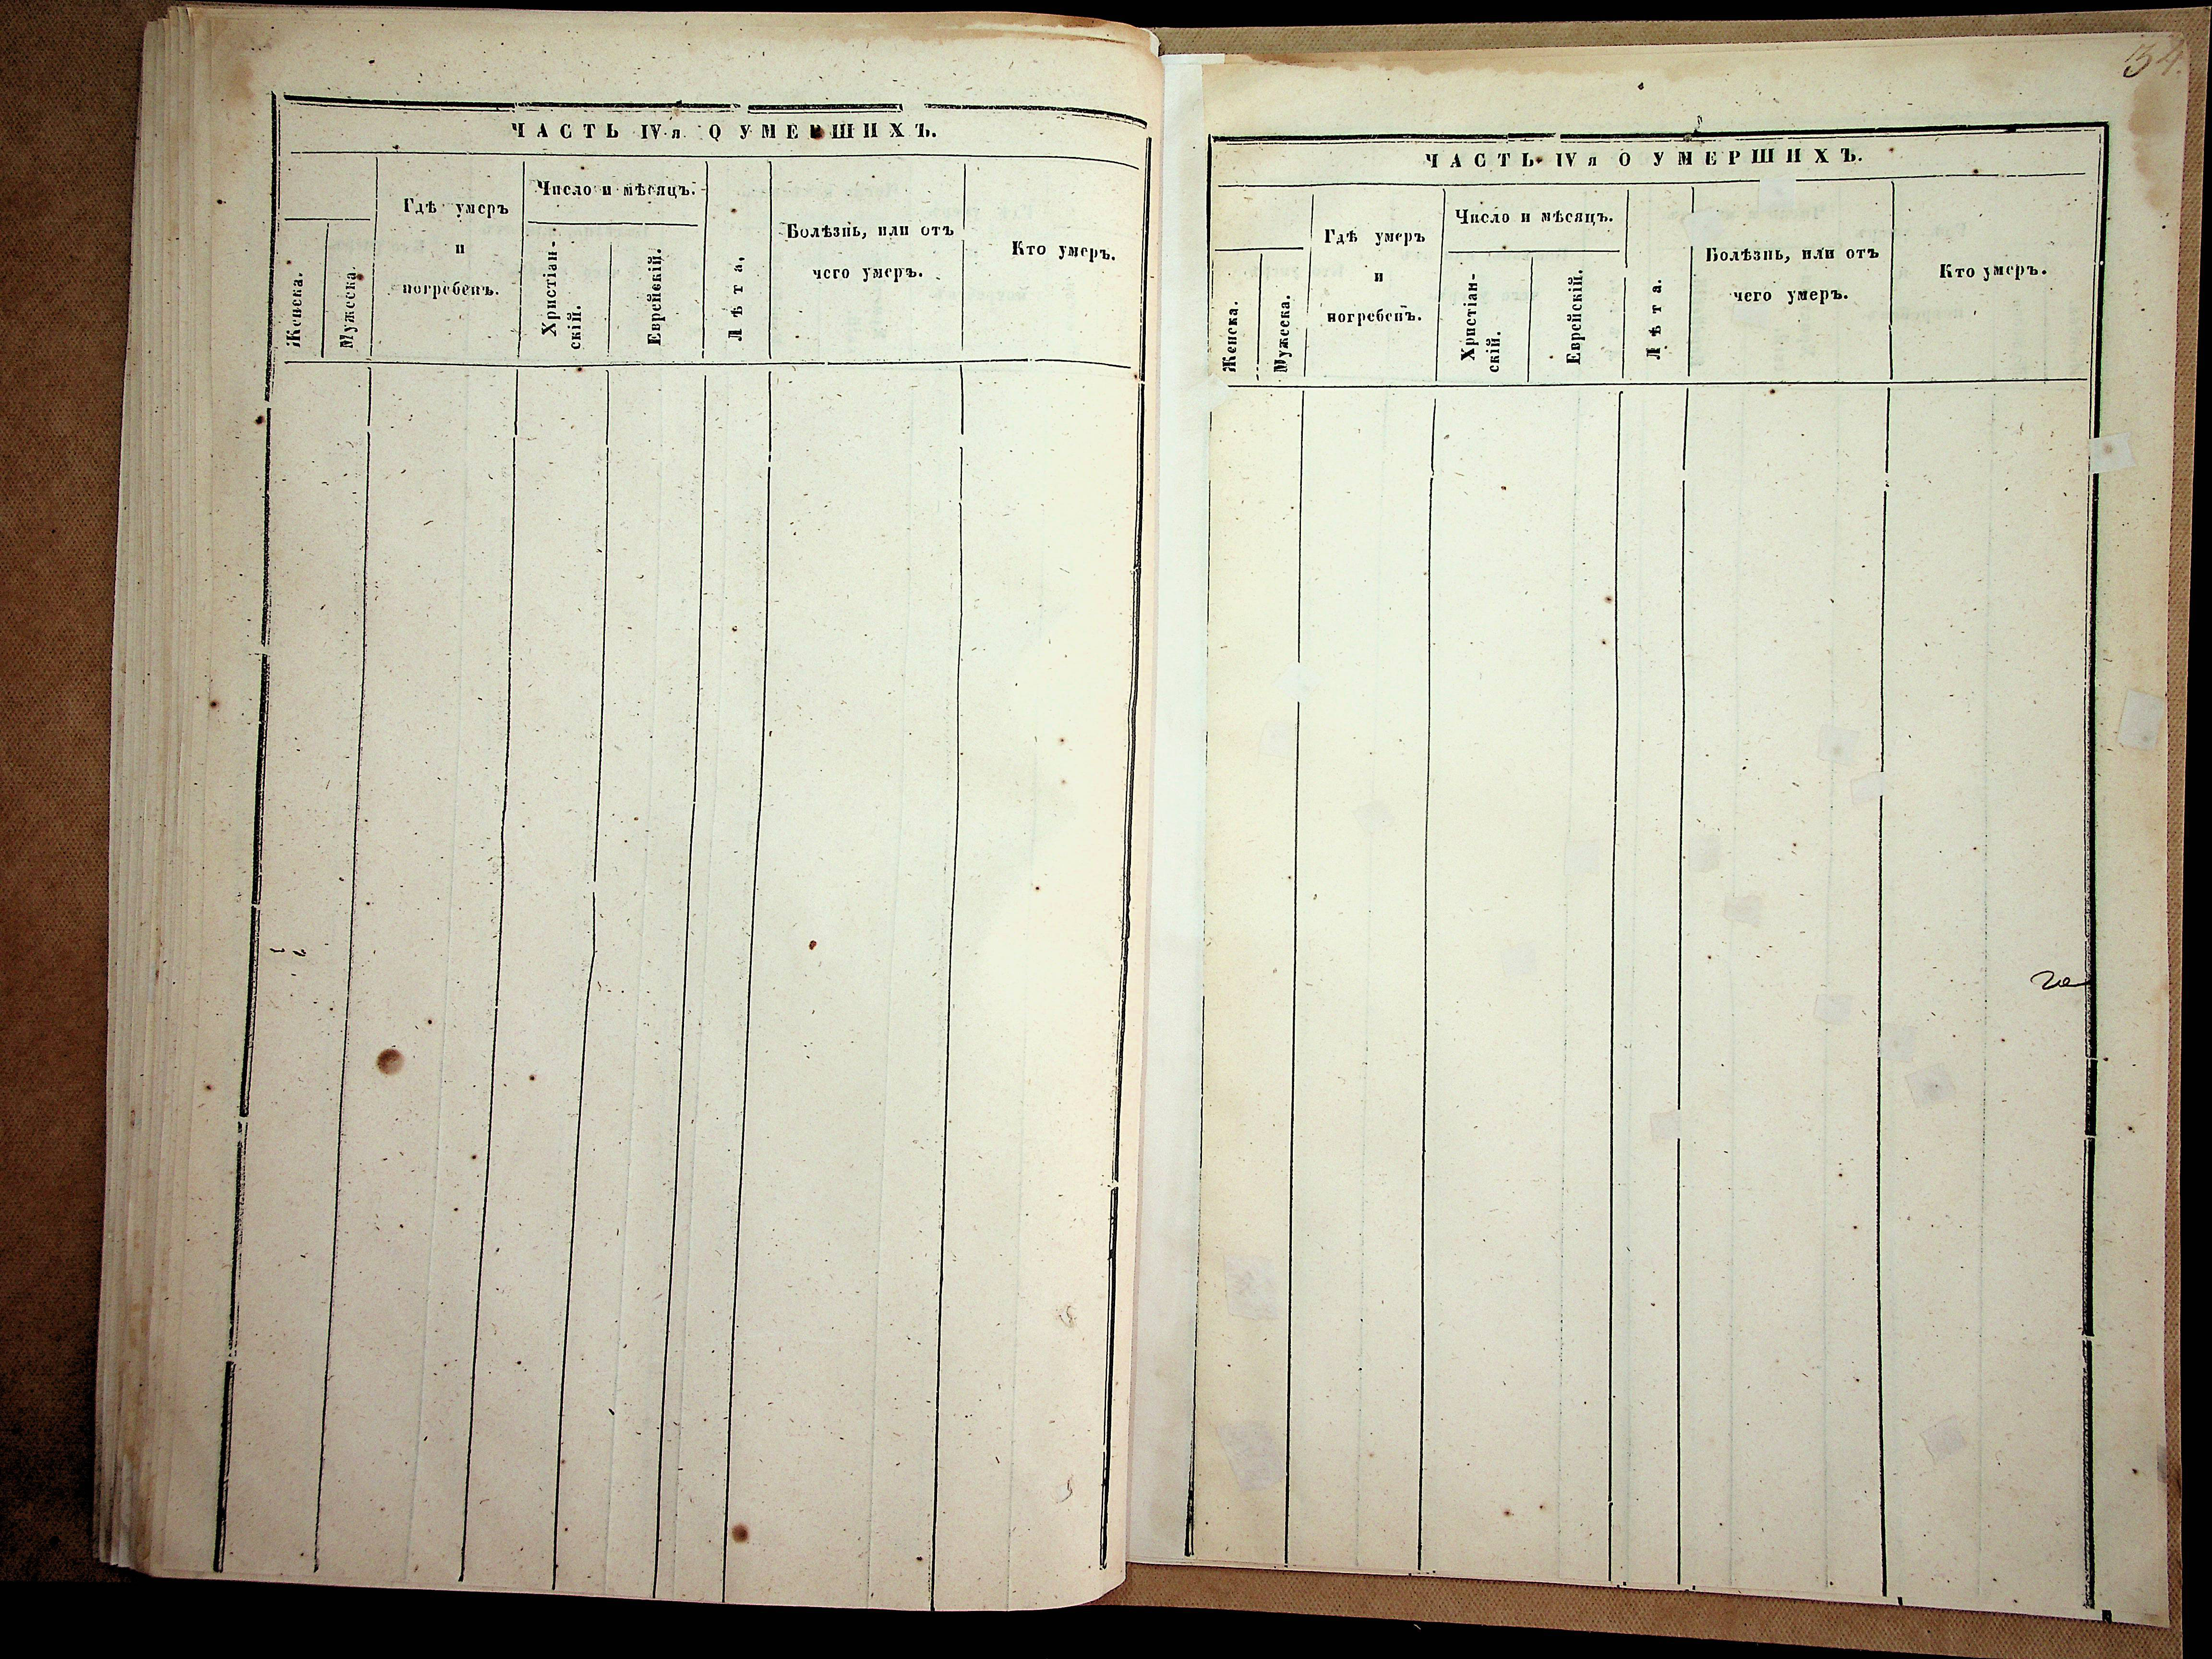 ЧАСТЬ IV я О УМЕРШИХЪ.
Женска.
Мужеска.
Гдѣ умеръ
и
погребенъ.
Число и мѣсяцъ.
Христіан-
скій.
Еврейскій.
Лѣта.
Болѣзнь, или отъ
чего умеръ.
Кто умеръ.
134.
ЧАСТЬ IV я О УМЕРШИХЪ.
Женска.
Мужеска.
Гдѣ умеръ
и
погребенъ.
Число и мѣсяцъ.
Христіан-
скій.
Еврейскій.
Лѣта.
Болѣзнь, или отъ
чего умеръ.
Кто умеръ.